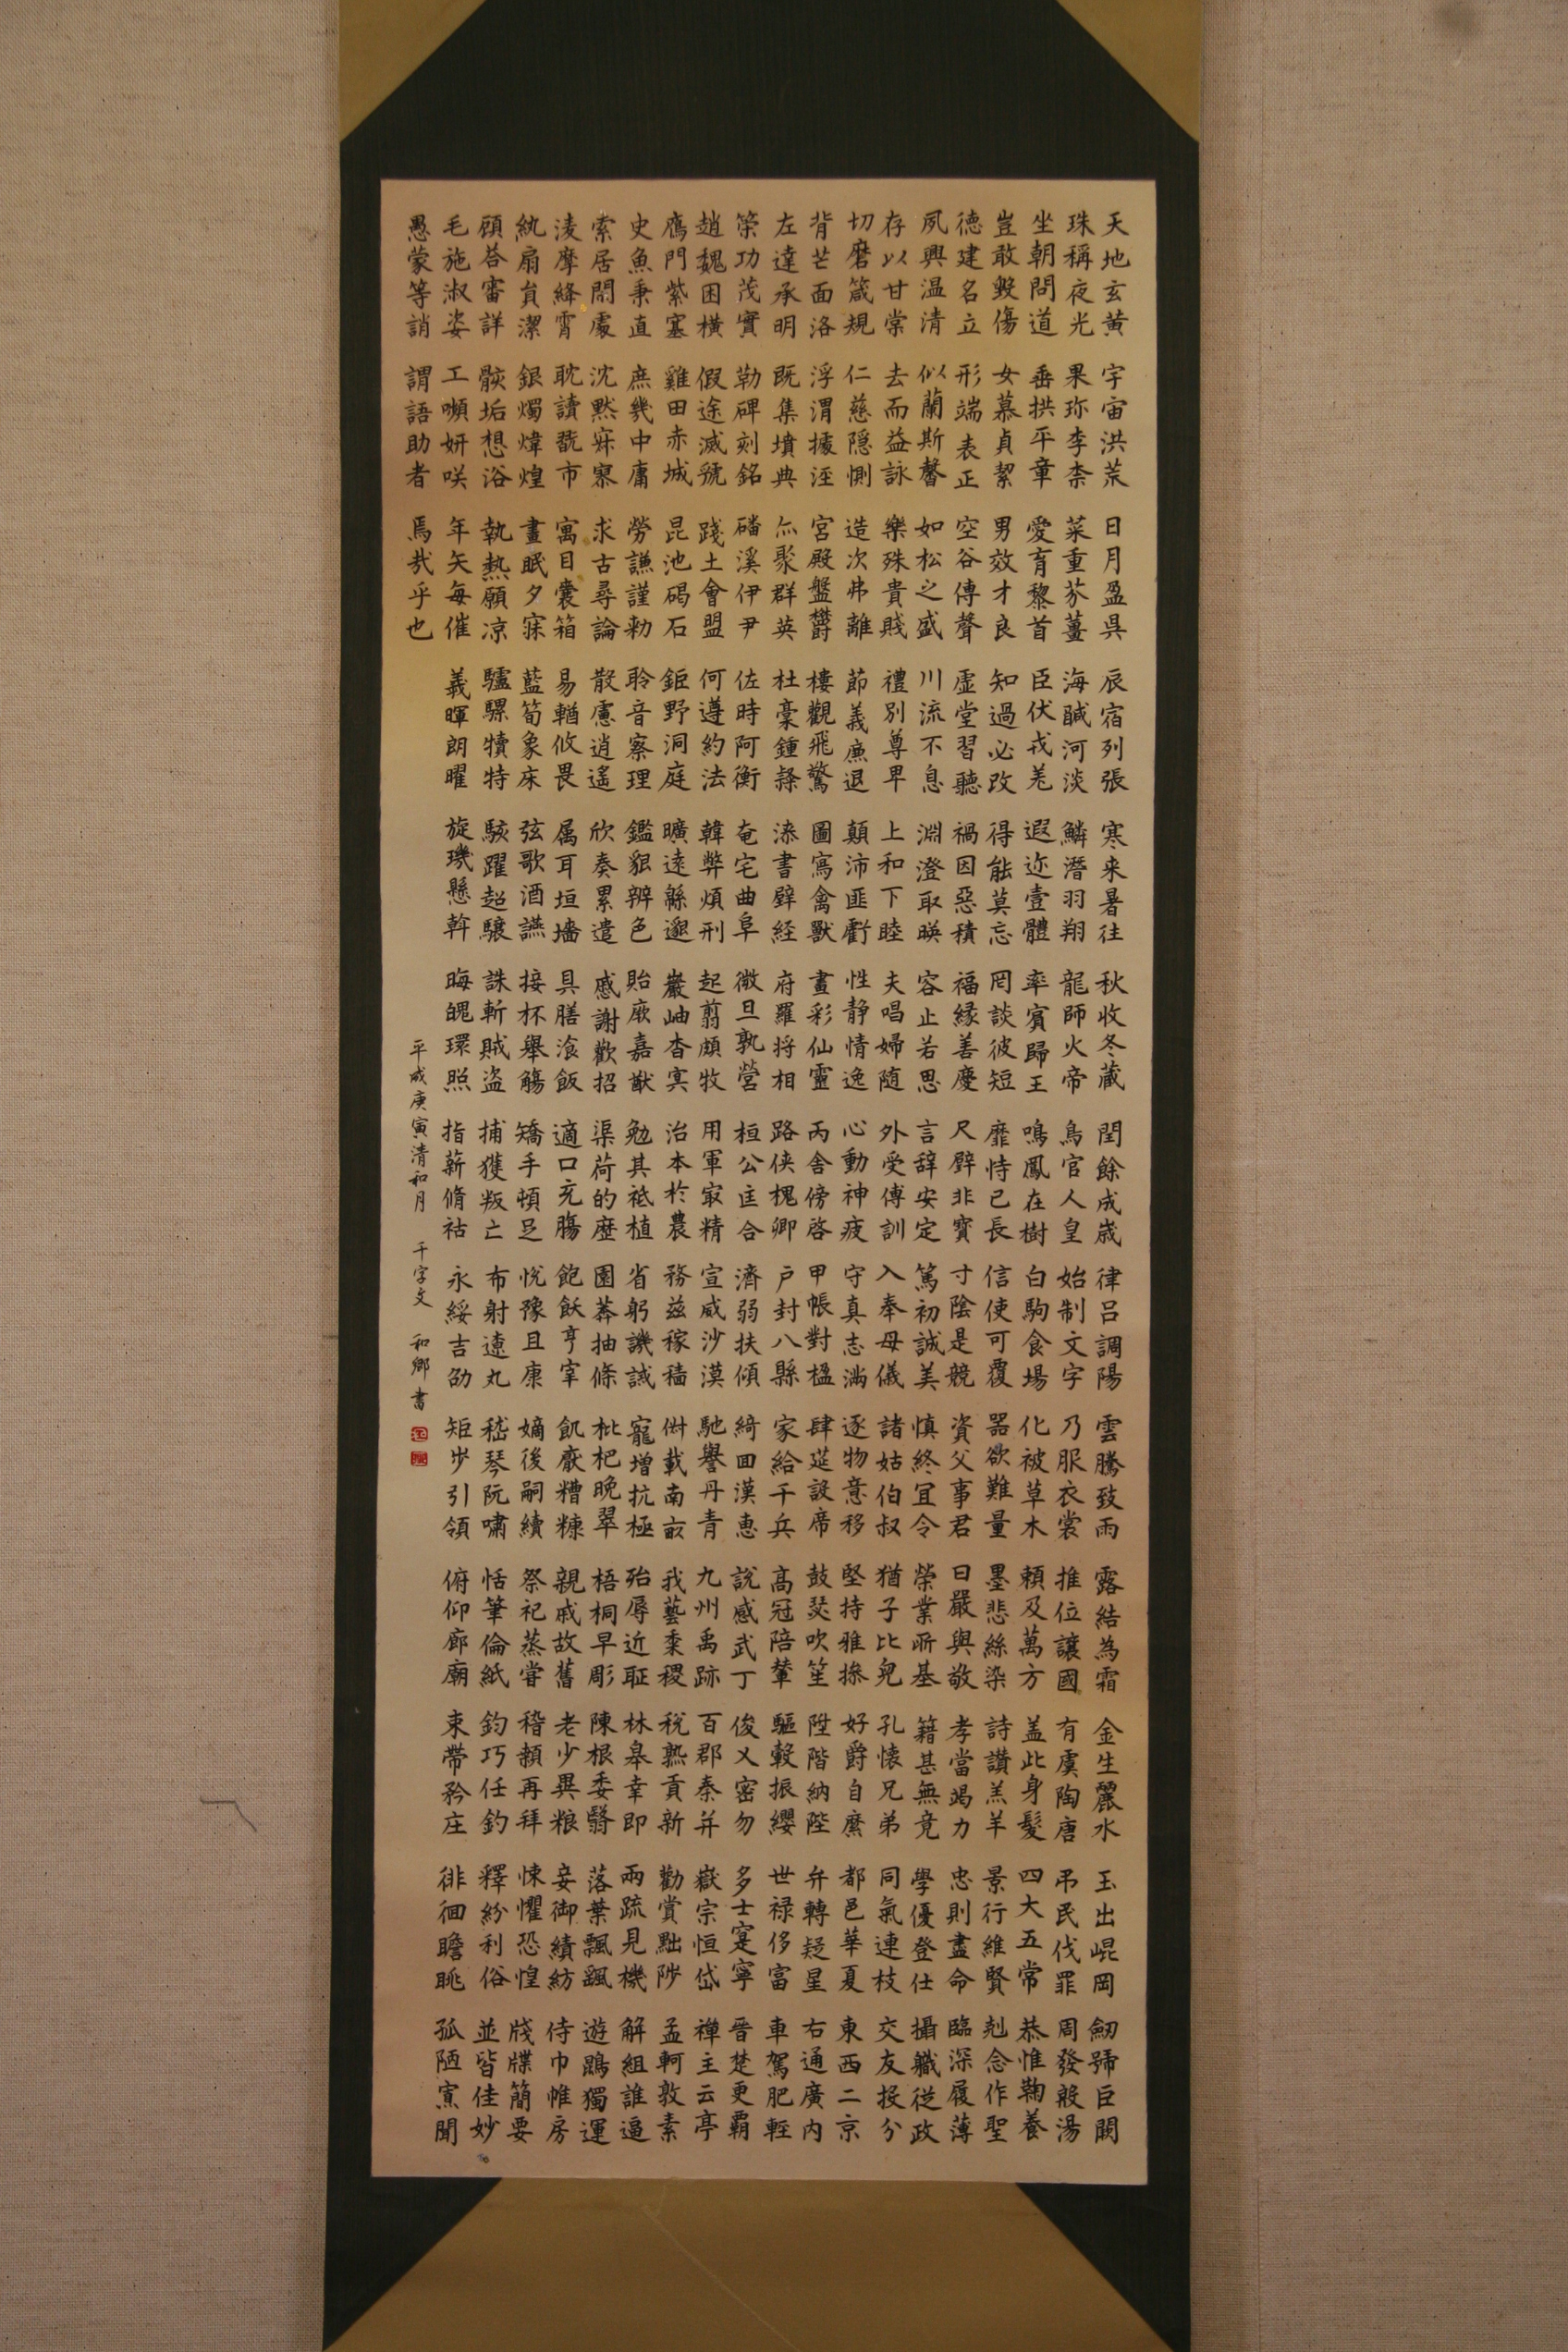 天地玄黄宇宙洪荒日月盈昃辰宿列張寒来暑往秋收冬蔵閏餘成歳律呂調陽雲騰致雨露結為霜金生麗水玉出崐岡劒號巨闕
珠稱夜光果珎李柰菜重芥薑海鹹河淡鱗潛羽翔龍師火帝鳥官人皇始制文字乃服衣裳推位讓國有虞陶唐弔民伐罪周發殷湯
坐朝問道垂拱平章愛育黎首臣伏戎羌遐迩壹體率賓歸王鳴鳳在樹白駒食場化被草木頼及萬方盖此身髮四大五常恭惟鞠養
豈敢毀傷女慕貞絜男效才良知過必改得能莫忘罔談彼短靡恃己長信使可覆器欲難量墨悲絲染詩讚羔羊景行維賢剋念作聖
德建名立形端表正空谷傳聲虚堂習聽禍因惡積福縁善慶尺璧非寶寸陰是競資父事君曰嚴與敬孝當竭力忠則盡命臨深履薄
夙興温清似蘭斯馨如松之盛川流不息淵澄取暎容止若思言辞安定篤初誠美慎終宜令榮業所基籍甚無竟學優登仕攝職従政
存以甘棠去而益詠樂殊貴賤禮別尊卑上和下睦夫唱婦随外受傅訓入奉母儀諸姑伯叔猶子比兒孔懐兄弟同氣連枝交友投分
切磨箴規仁慈隠惻造次弗離節義廉退顛沛匪虧性静情逸心動神疲守真志満逐物意移堅持雅操好爵自縻都邑華夏東西二京
背芒面洛浮渭據涇宮殿盤欝樓觀飛驚圖寫禽獸畫彩仙靈丙舎傍啓甲帳對楹肆筵設席鼓瑟吹笙陞階納陛弁轉疑星右通廣内
左達承明既集墳典亦聚群英杜稾鍾隷漆書壁経府羅将相路侠槐卿戸封八縣家給千兵高冠陪輦驅轂振纓世禄侈富車駕肥輕
策功茂實勒碑刻銘磻溪伊尹佐時阿衡奄宅曲阜微旦孰營桓公匡合濟弱扶傾綺回漢惠説感武丁俊乂密勿多士寔寧晉楚更覇
趙魏困橫假途滅虢踐土會盟何遵約法韓弊煩刑起翦頗牧用軍最精宣威沙漠馳譽丹青九州禹跡百郡秦并嶽宗恒岱禅主云亭
鴈門紫塞雞田赤城昆池碣石鉅野洞庭曠遠緜邈巖岫杳冥治本於農務兹稼穡俶載南畝我藝黍稷税熟貢新勸賞黜陟孟軻敦素
史魚秉直庶幾中庸勞謙謹勅聆音察理鑑貌辨色貽厥嘉猷勉其祗植省躬譏誡寵增抗極殆辱近耻林皋幸即兩疏見機解組誰逼
索居閑處沈黙寂寥求古尋論散慮逍遙欣奏累遣慼謝歡招渠荷的歴園莽抽條枇杷晩翠梧桐早彫陳根委翳落葉飄颻遊鵾獨運
淩摩絳霄耽讀翫市寓目嚢箱易輶攸畏属耳垣墻具膳飡飯適口充腸飽飫亨宰飢厭糟糠親戚故舊老少異粮妾御績紡侍巾帷房
紈扇員潔銀燭煒煌晝眠夕寐藍筍象床弦歌酒讌接杯舉觴矯手頓足悅豫且康嫡後嗣續祭祀蒸嘗稽顙再拜悚懼恐惶牋牒簡要
顧荅審詳骸垢想浴執熱願凉驢騾犢特駭躍超驤誅斬賊盗捕獲叛亡布射遼丸嵇琴阮嘯恬筆倫紙鈞巧任釣釋紛利俗並皆佳妙
毛施淑姿工嚬妍咲年矢毎催羲暉朗曜旋璣懸斡晦魄環照指薪脩祜永綏吉劭矩歩引領俯仰廊廟束帶矜庄徘徊瞻眺孤陋寡聞
愚蒙等誚謂語助者焉哉乎也
平成庚寅清和月 千字文 和郷書